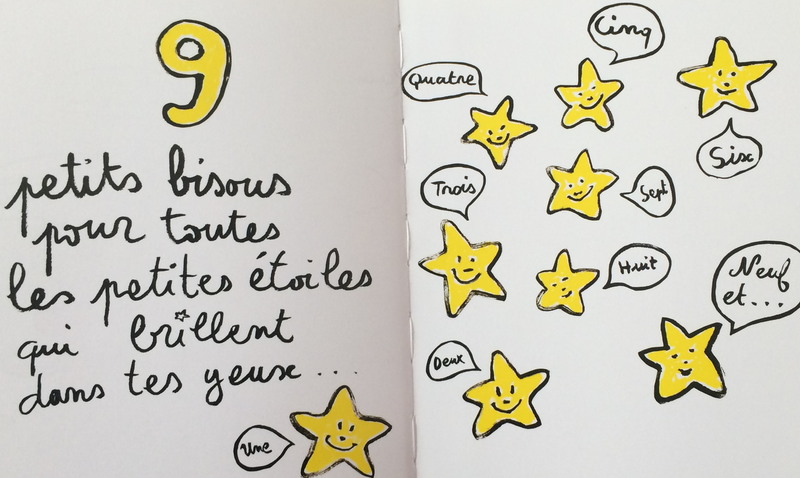 9
petits bisous
pour toutes
les petites étoiles
qui brillent
dans tes yeux...
Une
Deux
Trois
Quatre
Cinq
Six
Sept
Huit
Neuf
et...